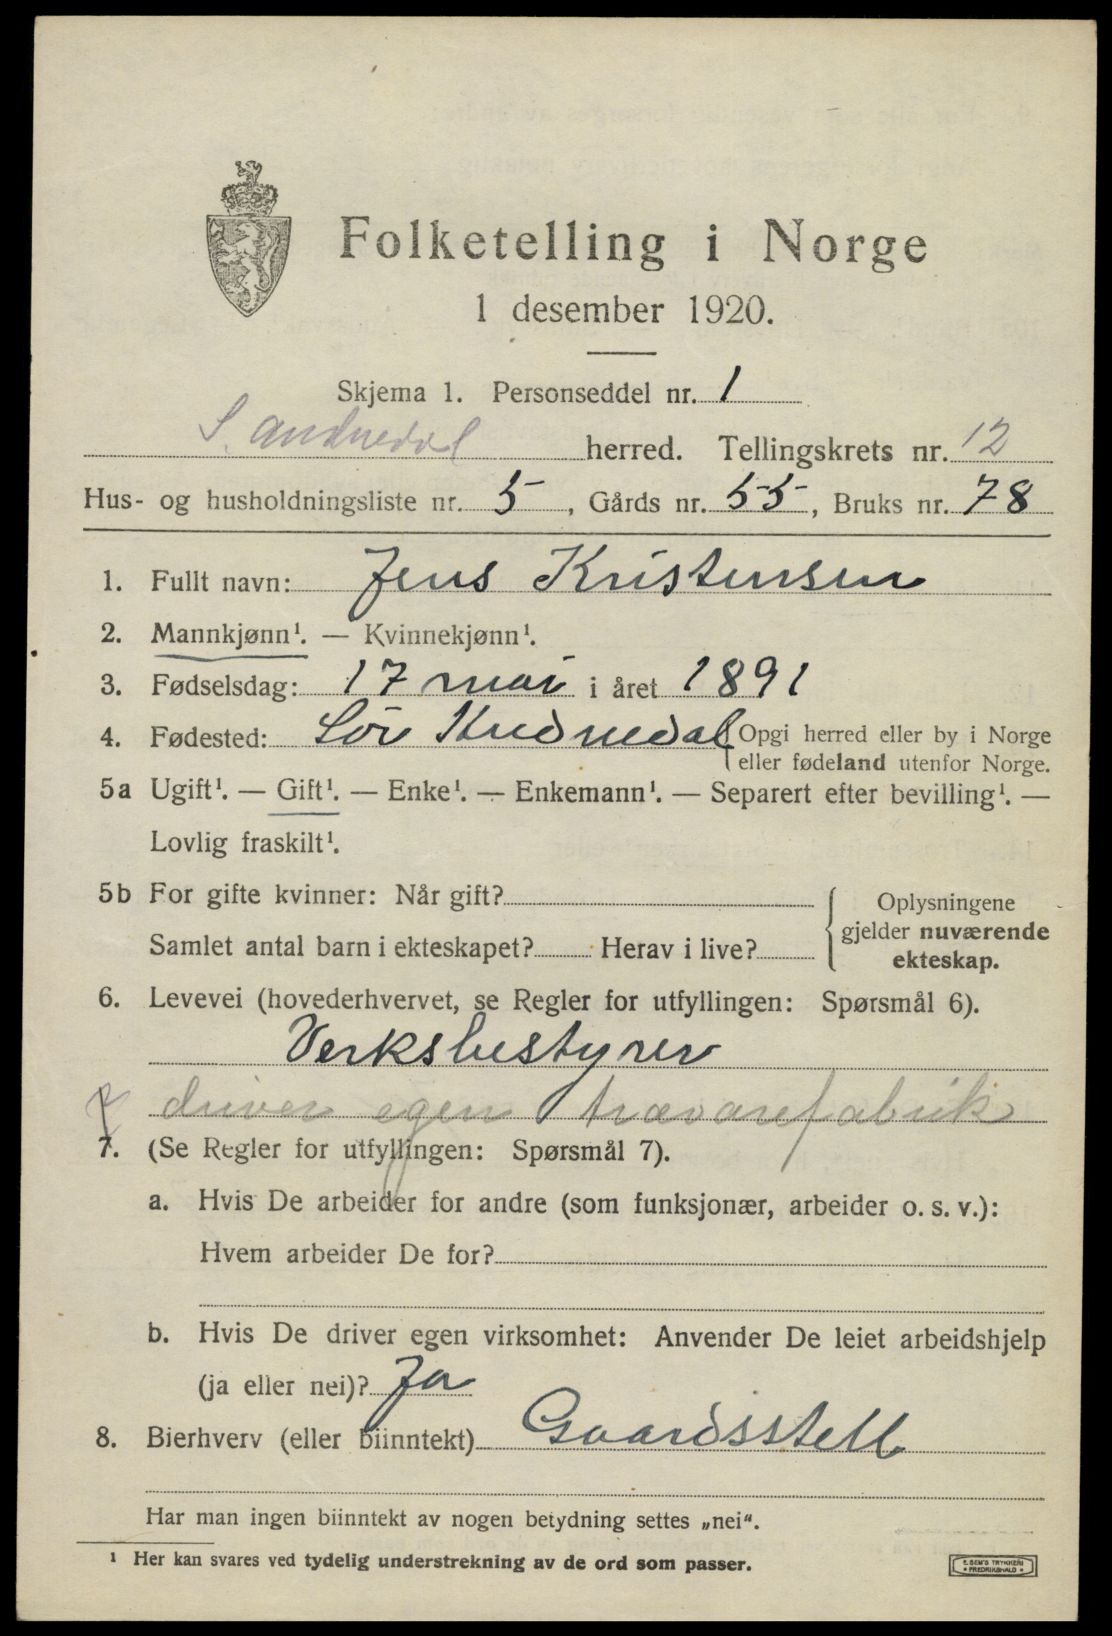 Folketelling i Norge
1 desember 1920.
Skjema 1. Personseddel nr. 1
S. Andnedal herred. Tellingskrets nr. 12
Hus- og husholdningsliste nr. 5, Gårds nr. 55, Bruks nr. 78
1. Fullt navn: Jens Kristensen
2. Mannkjønn¹. — Kvinnekjønn¹.
3. Fødselsdag: 17 mai i året 1891
4. Fødested: Sør Audnedal { Opgi herred eller by i Norge
eller fødeland utenfor Norge.
5a Ugift¹. — Gift¹. — Enke¹. — Enkemann¹. — Separert efter bevilling¹. —
Lovlig fraskilt¹.
5b For gifte kvinner: Når gift?
Samlet antal barn i ekteskapet? Herav i live?
Oplysningene
gjelder nuværende
ekteskap.
6. Levevei (hovederhvervet, se Regler for utfyllingen: Spørsmål 6).
Verksbestyrer
driver egen trævarefabrik
7. (Se Regler for utfyllingen: Spørsmål 7).
a. Hvis De arbeider for andre (som funksjonær, arbeider o. s. v.):
Hvem arbeider De for?
b. Hvis De driver egen virksomhet: Anvender De leiet arbeidshjelp
(ja eller nei)? Ja
8. Bierhverv (eller biinntekt) Gaardsstell
Har man ingen biinntekt av nogen betydning settes „nei“.
¹ Her kan svares ved tydelig understrekning av de ord som passer.
E. SEM'S TRYKKERI
• FREDRIKSHALD •